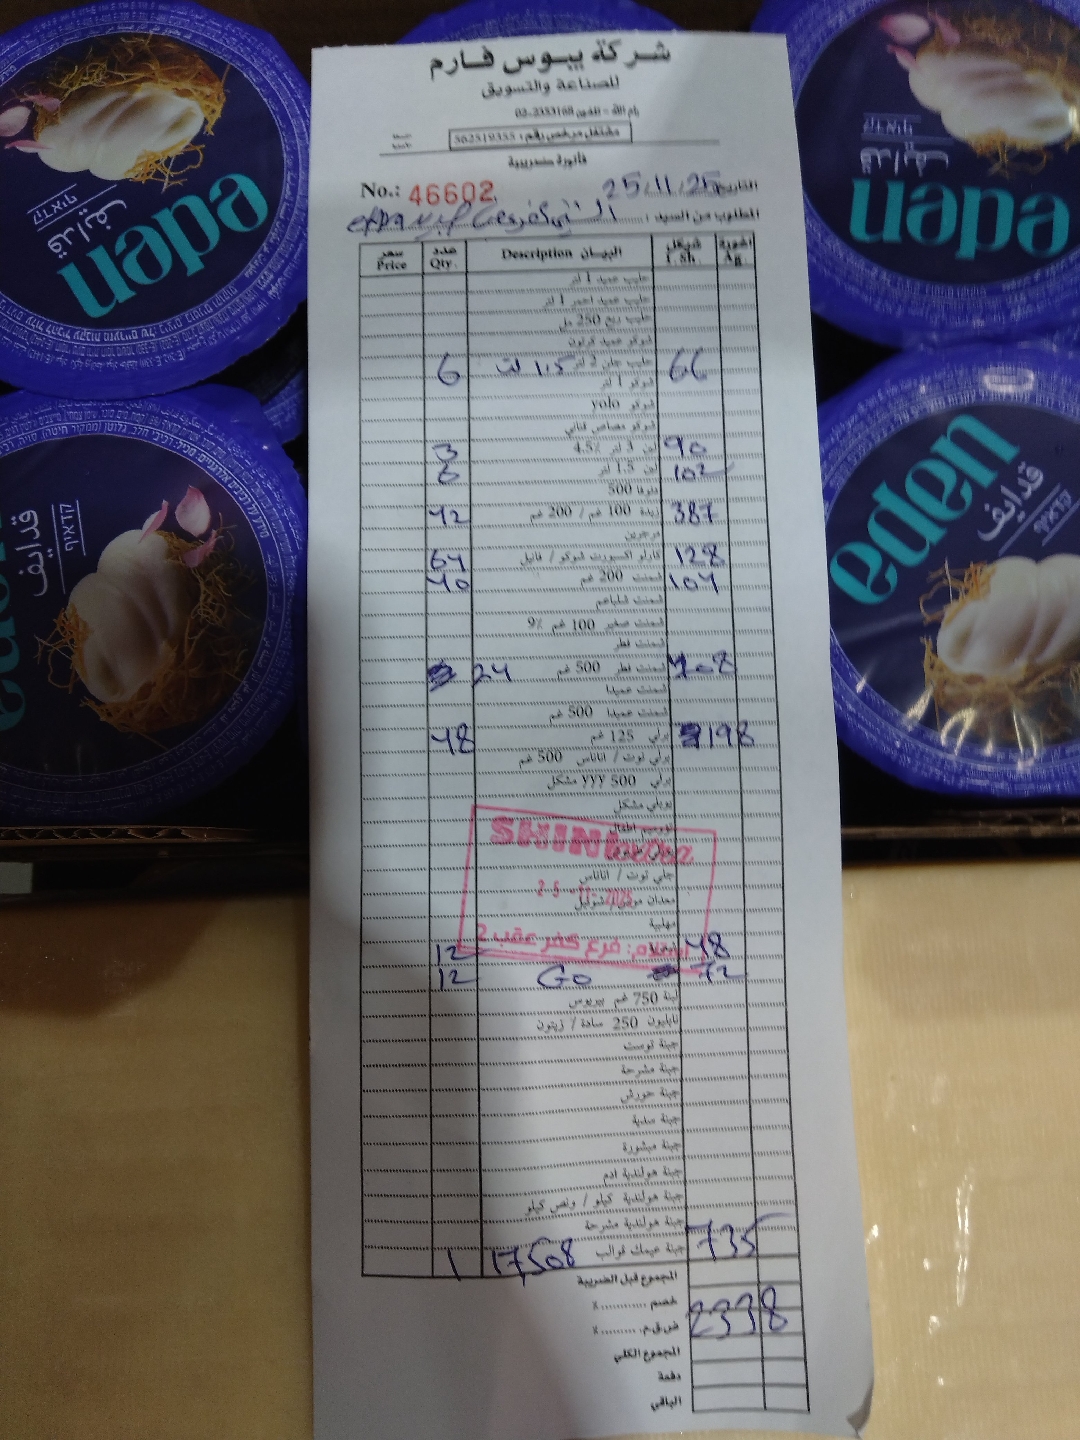 شركة يبوس فارم
للصناعة والتسويق
رام الله - تلفون 02-2353168
مشتغل مرخص رقم: 562519355
فاتورة ضريبية
No.: 46602
التاريخ 25.11.25
المطلوب من السيد:
سعر Price عدد Qty. البيــان Description شيكل I. Sh. اغورة Ag.
حليب عميد 1 لتر
حليب عميد احمر 1 لتر
حليب ربع 250 مل
شوكو عميد كرتون
6 حليب جلن 2 لتر 1.5 لتر 66
شوكو 1 لتر
شوكو yolo
شوكو مصاص قناني
3 لبن 3 لتر 4.5٪ 90
6 لبن 1.5 لتر 102
500
42 زبدة 100 غم / 200 غم 387
مرجرين
64 كارلو اكسبورت شوكو / فانيل 128
40 شمنت 200 غم 104
شمنت
شمنت صغير 100 غم 9٪
شمنت فطر
24 شمنت فطر 500 غم 408
شمنت عميدا
شمنت عميدا 500 غم
48 برلي 125 غم 198
برلي توت / اناناس 500 غم
برلي 500 YYY مشكل
يوبلي مشكل
SHINI
جلي توت / اناناس
25-11-2025
مهلبية
استلام: فرع كفر عقب 2
12 48
12 Go 72
لبنة 750 غم يبوس
نابليون 250 سادة / زيتون
جبنة توست
جبنة مشرحة
جبنة حورش
جبنة صلبة
جبنة مبشورة
جبنة هولندية ادم
جبنة هولندية كيلو / ونص كيلو
جبنة هولندية مشرحة
1 17508 جبنة عيمك قوالب 735
المجموع قبل الضريبة
خصم ............٪
ض.ق.م. .........٪ 2338
المجموع الكلي
دفعة
الباقي
eden
قدايف
קדאיף
eden
قدايف
קדאיף
eden
قدايف
קדאיף
eden
قدايف
קדאיף